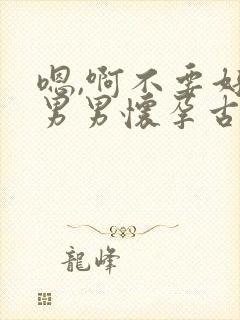 嗯,啊不要好
男男怀孕古
龍峰